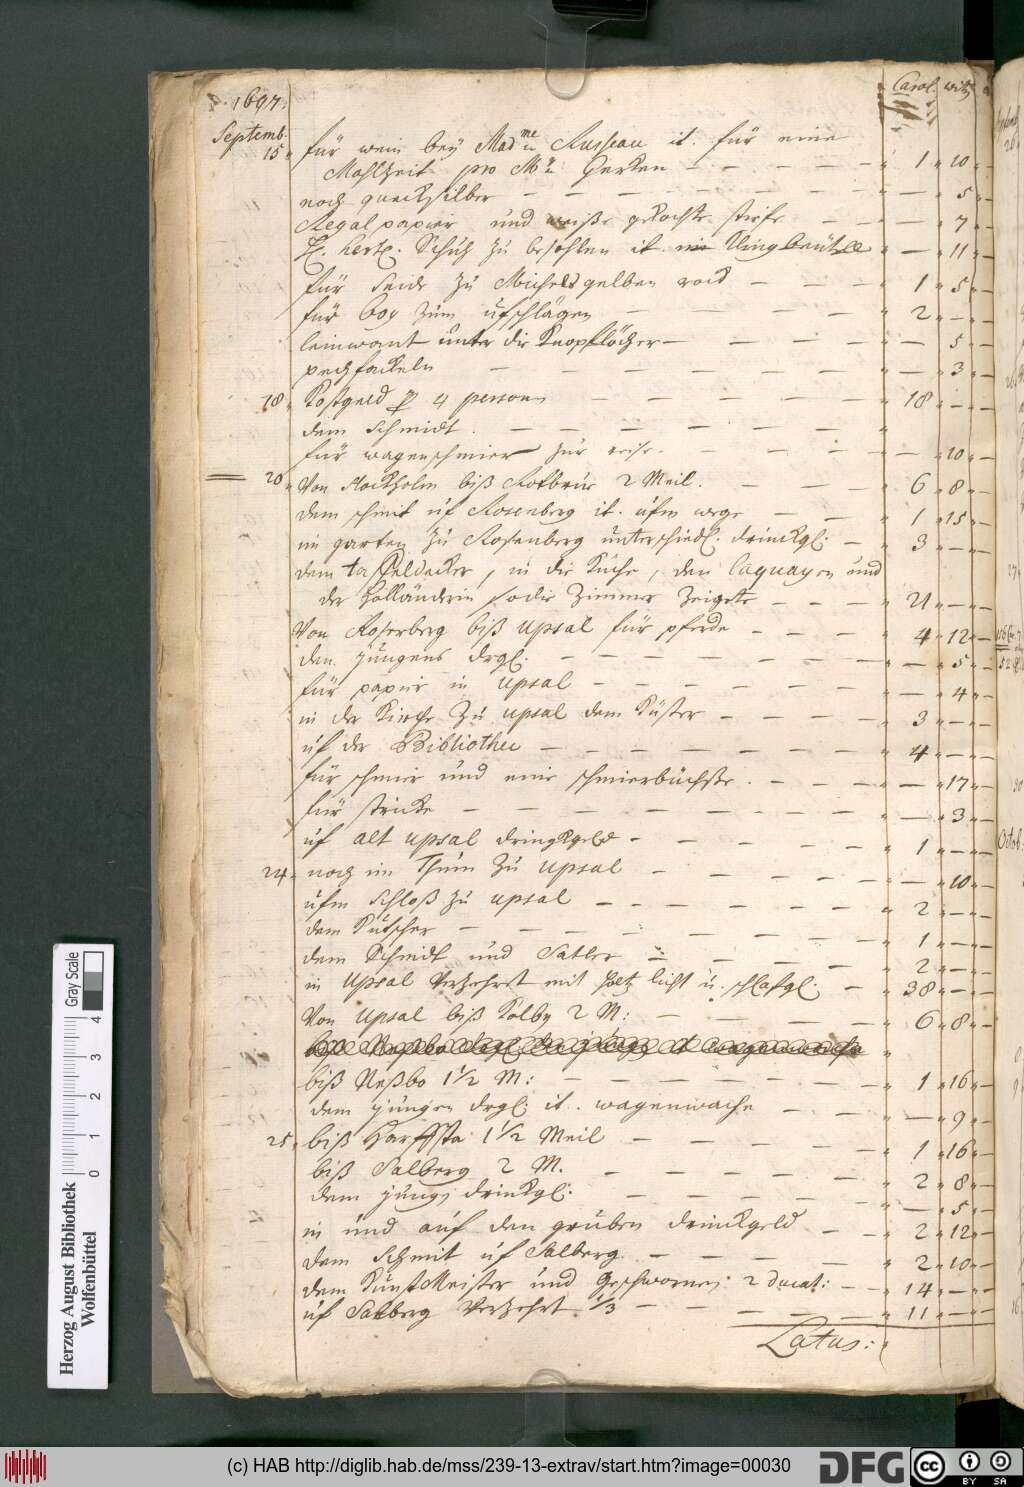 1697. Carol. witt
Septemb.
15 für wein bey Mad.me Russeau it. für eine
Mahlzeit pro Mr Gerken — 1 10 —
noch quecksilber — — 5 —
Regal papier und weiße gekochte stiefe — — 7 —
H. hertz. Schuh zu besohlen it. — 11 —
für Seide zu Michels gelben rock — 1 5 —
für boy zum ufschlägen — 2 — —
leinwant unter die Knopflöcher — — 5 —
pechfackeln — — 3 —
18 Kostgeld p 4 person — 18 — —
dem Schmidt. —
für wagenschmier zur reise. — — 10 —
20 Von Stockholm biß Rotbrur 2 Meil. — 6 8 —
dem schmit uf Rosenberg it. ufm wege — 1 15 —
im garten zu Rosenberg unterschiedl. drinckgl: — 3 — —
dem taffeldecker, in die Küche, den laquayen und
der Holländerin so die Zimmer zeigete — 21 — —
Von Roserberg biß Upsal für pferde — 4 12 —
den jungens drgl. — — 5 —
für papier in Upsal — — 4 —
in der Kirche zu Upsal dem Küster — 3 — —
uf der Bibliothec — 4 — —
für schmier und eine schmierbüchsse. — — 17 —
für stricke — — 3 —
uf alt Upsal drinckgeld — 1 — —
24 noch im Thum zu Upsal — — 10 —
ufm Schloß zu Upsal — 2 — —
dem Kutscher — 1 — —
dem Schmidt und Satler — 2 — —
in Upsal Verzehret mit holtz licht u. schlafgl: — 38 — —
Von Upsal biß Kolby 2 M: — 6 8 —
biß Neßbo 1 1/2 M: — 1 16 —
dem jungen drgl: it. wagenwache — — 9 —
25 biß Harffsta 1 1/2 Meil — 1 16 —
biß Salberg 2 M. — 2 8 —
dem jungen drinckgl: — — 5 —
in und auf den gruben drinckgeld — 2 12 —
dem Schmit uf Salberg. — 2 10 —
dem KunstMeister und Geschwornen 2 ducat: — 14 — —
uf Salberg Verzehrt 1/3 — 11 — —
Latus:
Herzog August Bibliothek
Wolfenbüttel
0 1 2 3 4
Gray Scale
(c) HAB http://diglib.hab.de/mss/239-13-extrav/start.htm?image=00030
DFG
cc BY SA